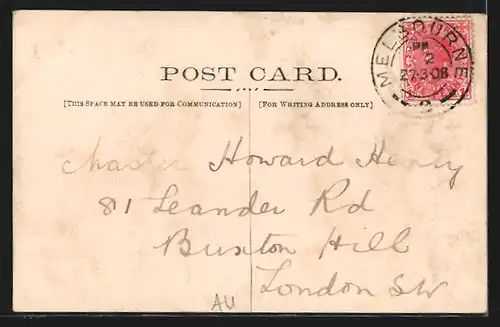 MELBOURNE
PM
2
27·3·08
2
POST CARD.
[THIS SPACE MAY BE USED FOR COMMUNICATION]
[FOR WRITING ADDRESS ONLY.]
Master Howard Henry
81 Leander Rd
Buxton Hill
London SW
AU